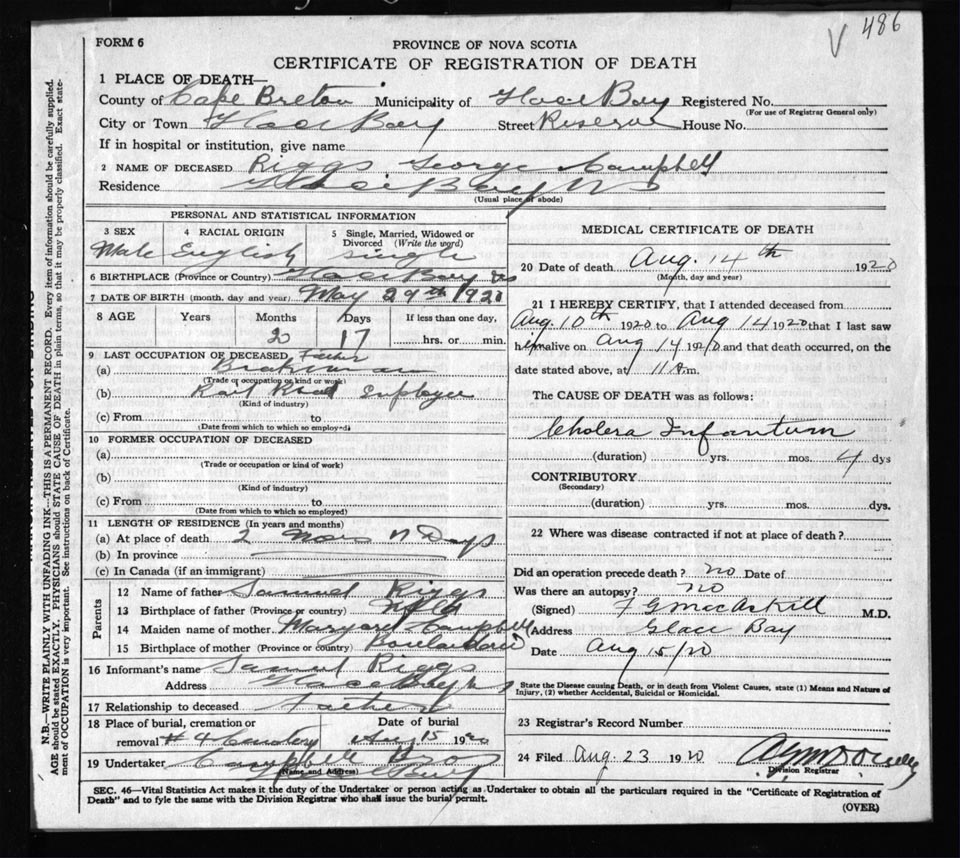 486
FORM 6
PROVINCE OF NOVA SCOTIA
CERTIFICATE OF REGISTRATION OF DEATH
1 PLACE OF DEATH—
County of Cape Breton Municipality of Glace Bay Registered No.
(For use of Registrar General only)
City or Town Glace Bay Street Reserve House No.
If in hospital or institution, give name
2 NAME OF DECEASED Riggs George Campbell
Residence Glace Bay NS
(Usual place of abode)
PERSONAL AND STATISTICAL INFORMATION
3 SEX 4 RACIAL ORIGIN 5 Single, Married, Widowed or Divorced (Write the word)
Male English Single
6 BIRTHPLACE (Province or Country) Glace Bay NS
7 DATE OF BIRTH (month, day and year) May 29th 1920
8 AGE Years Months Days If less than one day,
2 17 hrs. or min.
9 LAST OCCUPATION OF DECEASED Father
(a) Brakeman
(Trade or occupation or kind or work)
(b) Rail Road Employee
(Kind of industry)
(c) From to
(Date from which to which so employed)
10 FORMER OCCUPATION OF DECEASED
(a)
(Trade or occupation or kind of work)
(b)
(Kind of industry)
(c) From to
(Date from which to which so employed)
11 LENGTH OF RESIDENCE (In years and months)
(a) At place of death 2 Mos 17 Days
(b) In province
(c) In Canada (if an immigrant)
Parents
12 Name of father Samuel Riggs
13 Birthplace of father (Province or country) Nfld
14 Maiden name of mother Margaret Campbell
15 Birthplace of mother (Province or country) Boularderie
16 Informant's name Samuel Riggs
Address Glace Bay NS
17 Relationship to deceased Father
18 Place of burial, cremation or removal Date of burial
#4 Cemetery Aug 15 1920
19 Undertaker Campbell
(Name and Address)
Glace Bay
MEDICAL CERTIFICATE OF DEATH
20 Date of death Aug. 14th 1920
(Month, day and year)
21 I HEREBY CERTIFY, that I attended deceased from
Aug. 10th 1920 to Aug 14 1920 that I last saw
him alive on Aug 14 1920 and that death occurred, on the
date stated above, at 11 m.
The CAUSE OF DEATH was as follows:
Cholera Infantum
(duration) yrs. mos. 4 dys
CONTRIBUTORY
(Secondary)
(duration) yrs. mos. dys.
22 Where was disease contracted if not at place of death?
Did an operation precede death? no Date of
Was there an autopsy? no
(Signed) F G MacAskill M.D.
(Address Glace Bay
Date Aug 15/20
State the Disease causing Death, or in death from Violent Causes, state (1) Means and Nature of
Injury, (2) whether Accidental, Suicidal or Homicidal.
23 Registrar's Record Number
24 Filed Aug 23 1920
Division Registrar
SEC. 46—Vital Statistics Act makes it the duty of the Undertaker or person acting as Undertaker to obtain all the particulars required in the "Certificate of Registration of
Death" and to fyle the same with the Division Registrar who shall issue the burial permit.
(OVER)
N.B.—WRITE PLAINLY WITH UNFADING INK—THIS IS A PERMANENT RECORD. Every item of information should be carefully supplied.
AGE should be stated EXACTLY. PHYSICIANS should STATE CAUSE OF DEATH in plain terms, so that it may be properly classified. Exact state-
ment of OCCUPATION is very important. See instructions on back of Certificate.